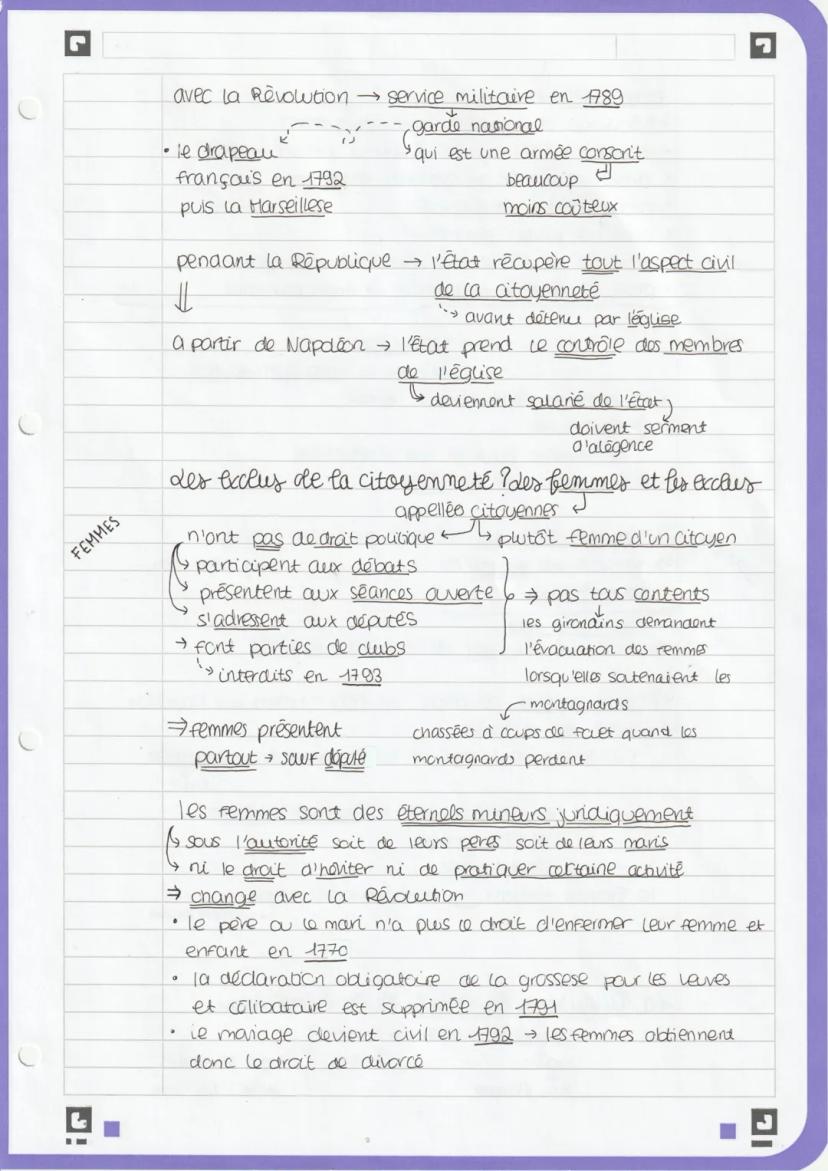 avec la Révolution → service militaire en 1789
garde nasional
• le drapeau
↳ qui est une armée conscrit
français en 1792
beaucoup
puis la Marseillese
moins coûteux
pendant la République → l'État récupère tout l'aspect civil
de la citoyenneté
↳ avant détenu par l'église
⇓
a partir de Napoléon → l'État prend le contrôle des membres
de l'église
↳ deviennent salarié de l'État
doivent serment
d'alégence
Les exclus de la citoyenneté ? des femmes et les exclus
appellée citoyennes
FEMMES
n'ont pas de droit politique ← ↳ plutôt femme d'un citoyen
↳ participent aux débats
↳ présentent aux séances ouverte
⇒ pas tous contents
↳ s'adressent aux députés
les girondins demandent
→ font parties de clubs
l'évacuation des femmes
↳ interdits en 1793
lorsqu'elles soutenaient les
montagnards
⇒ femmes présentent
chassées à coups de fouet quand les
partout → sauf député
montagnards perdent
les femmes sont des éternels mineurs juridiquement
↳ sous l'autorité soit de leurs peres soit de leurs maris
↳ ni le droit d'hériter ni de pratiquer certaine activité
⇒ change avec la Révolution
• le père ou le mari n'a plus le droit d'enfermer leur femme et
enfant en 1770
• la déclaration obligatoire de la grossese pour les veuves
et célibataire est supprimée en 1791
• le mariage devient civil en 1792 → les femmes obtiennent
donc le droit de divorcé